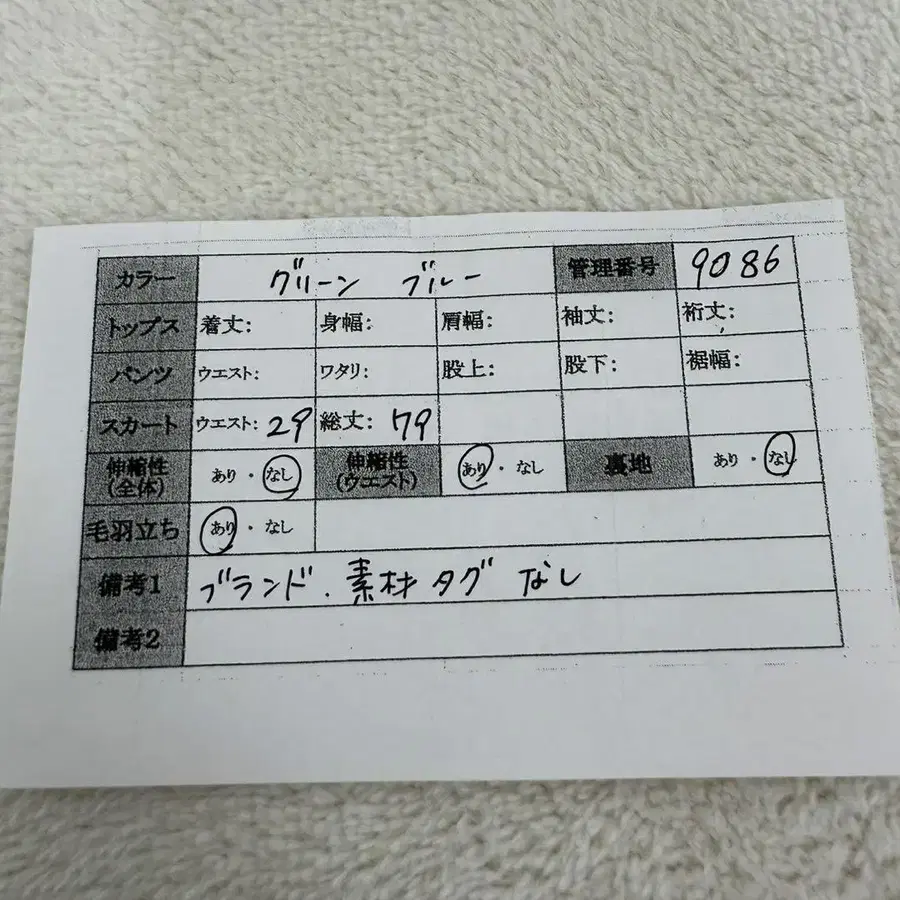 カラー グリーン ブルー 管理番号 9086
トップス 着丈: 身幅: 肩幅: 袖丈: 裄丈:
パンツ ウエスト: ワタリ: 股上: 股下: 裾幅:
スカート ウエスト: 29 総丈: 79
伸縮性 (全体) あり・なし 伸縮性 (ウエスト) あり・なし 裏地 あり・なし
毛羽立ち あり・なし
備考1 ブランド. 素材 タグ なし
備考2